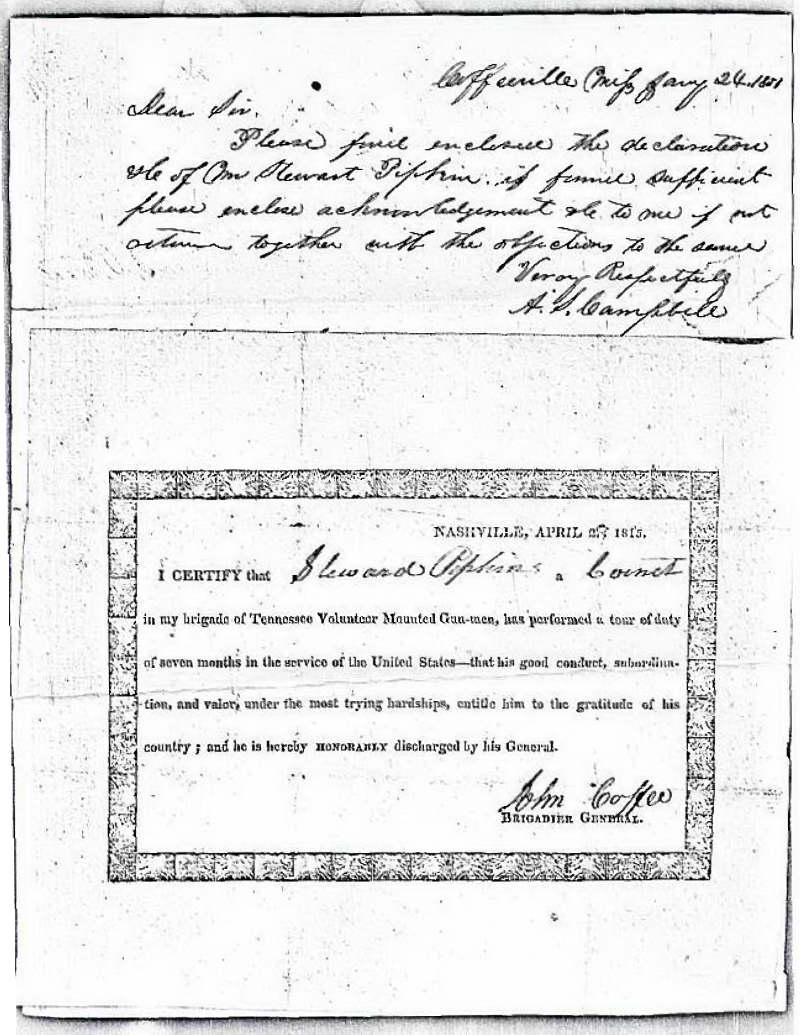 Coffeeville Miss Jany 24. 1851
Dear Sir.
Please find enclosed the declaration
&c of Mr Stewart Pipkin. if found sufficient
please enclose acknowledgement &c to me if not
return together with the objections to the same
Very Respectfully
A. S. Campbell
NASHVILLE, APRIL 27, 1815.
I CERTIFY that Steward Pipkins a Cornet
in my brigade of Tennessee Volunteer Mounted Gun-men, has performed a tour of duty
of seven months in the service of the United States—that his good conduct, subordina-
tion, and valor, under the most trying hardships, entitle him to the gratitude of his
country ; and he is hereby HONORABLY discharged by his General.
John Coffee
BRIGADIER GENERAL.